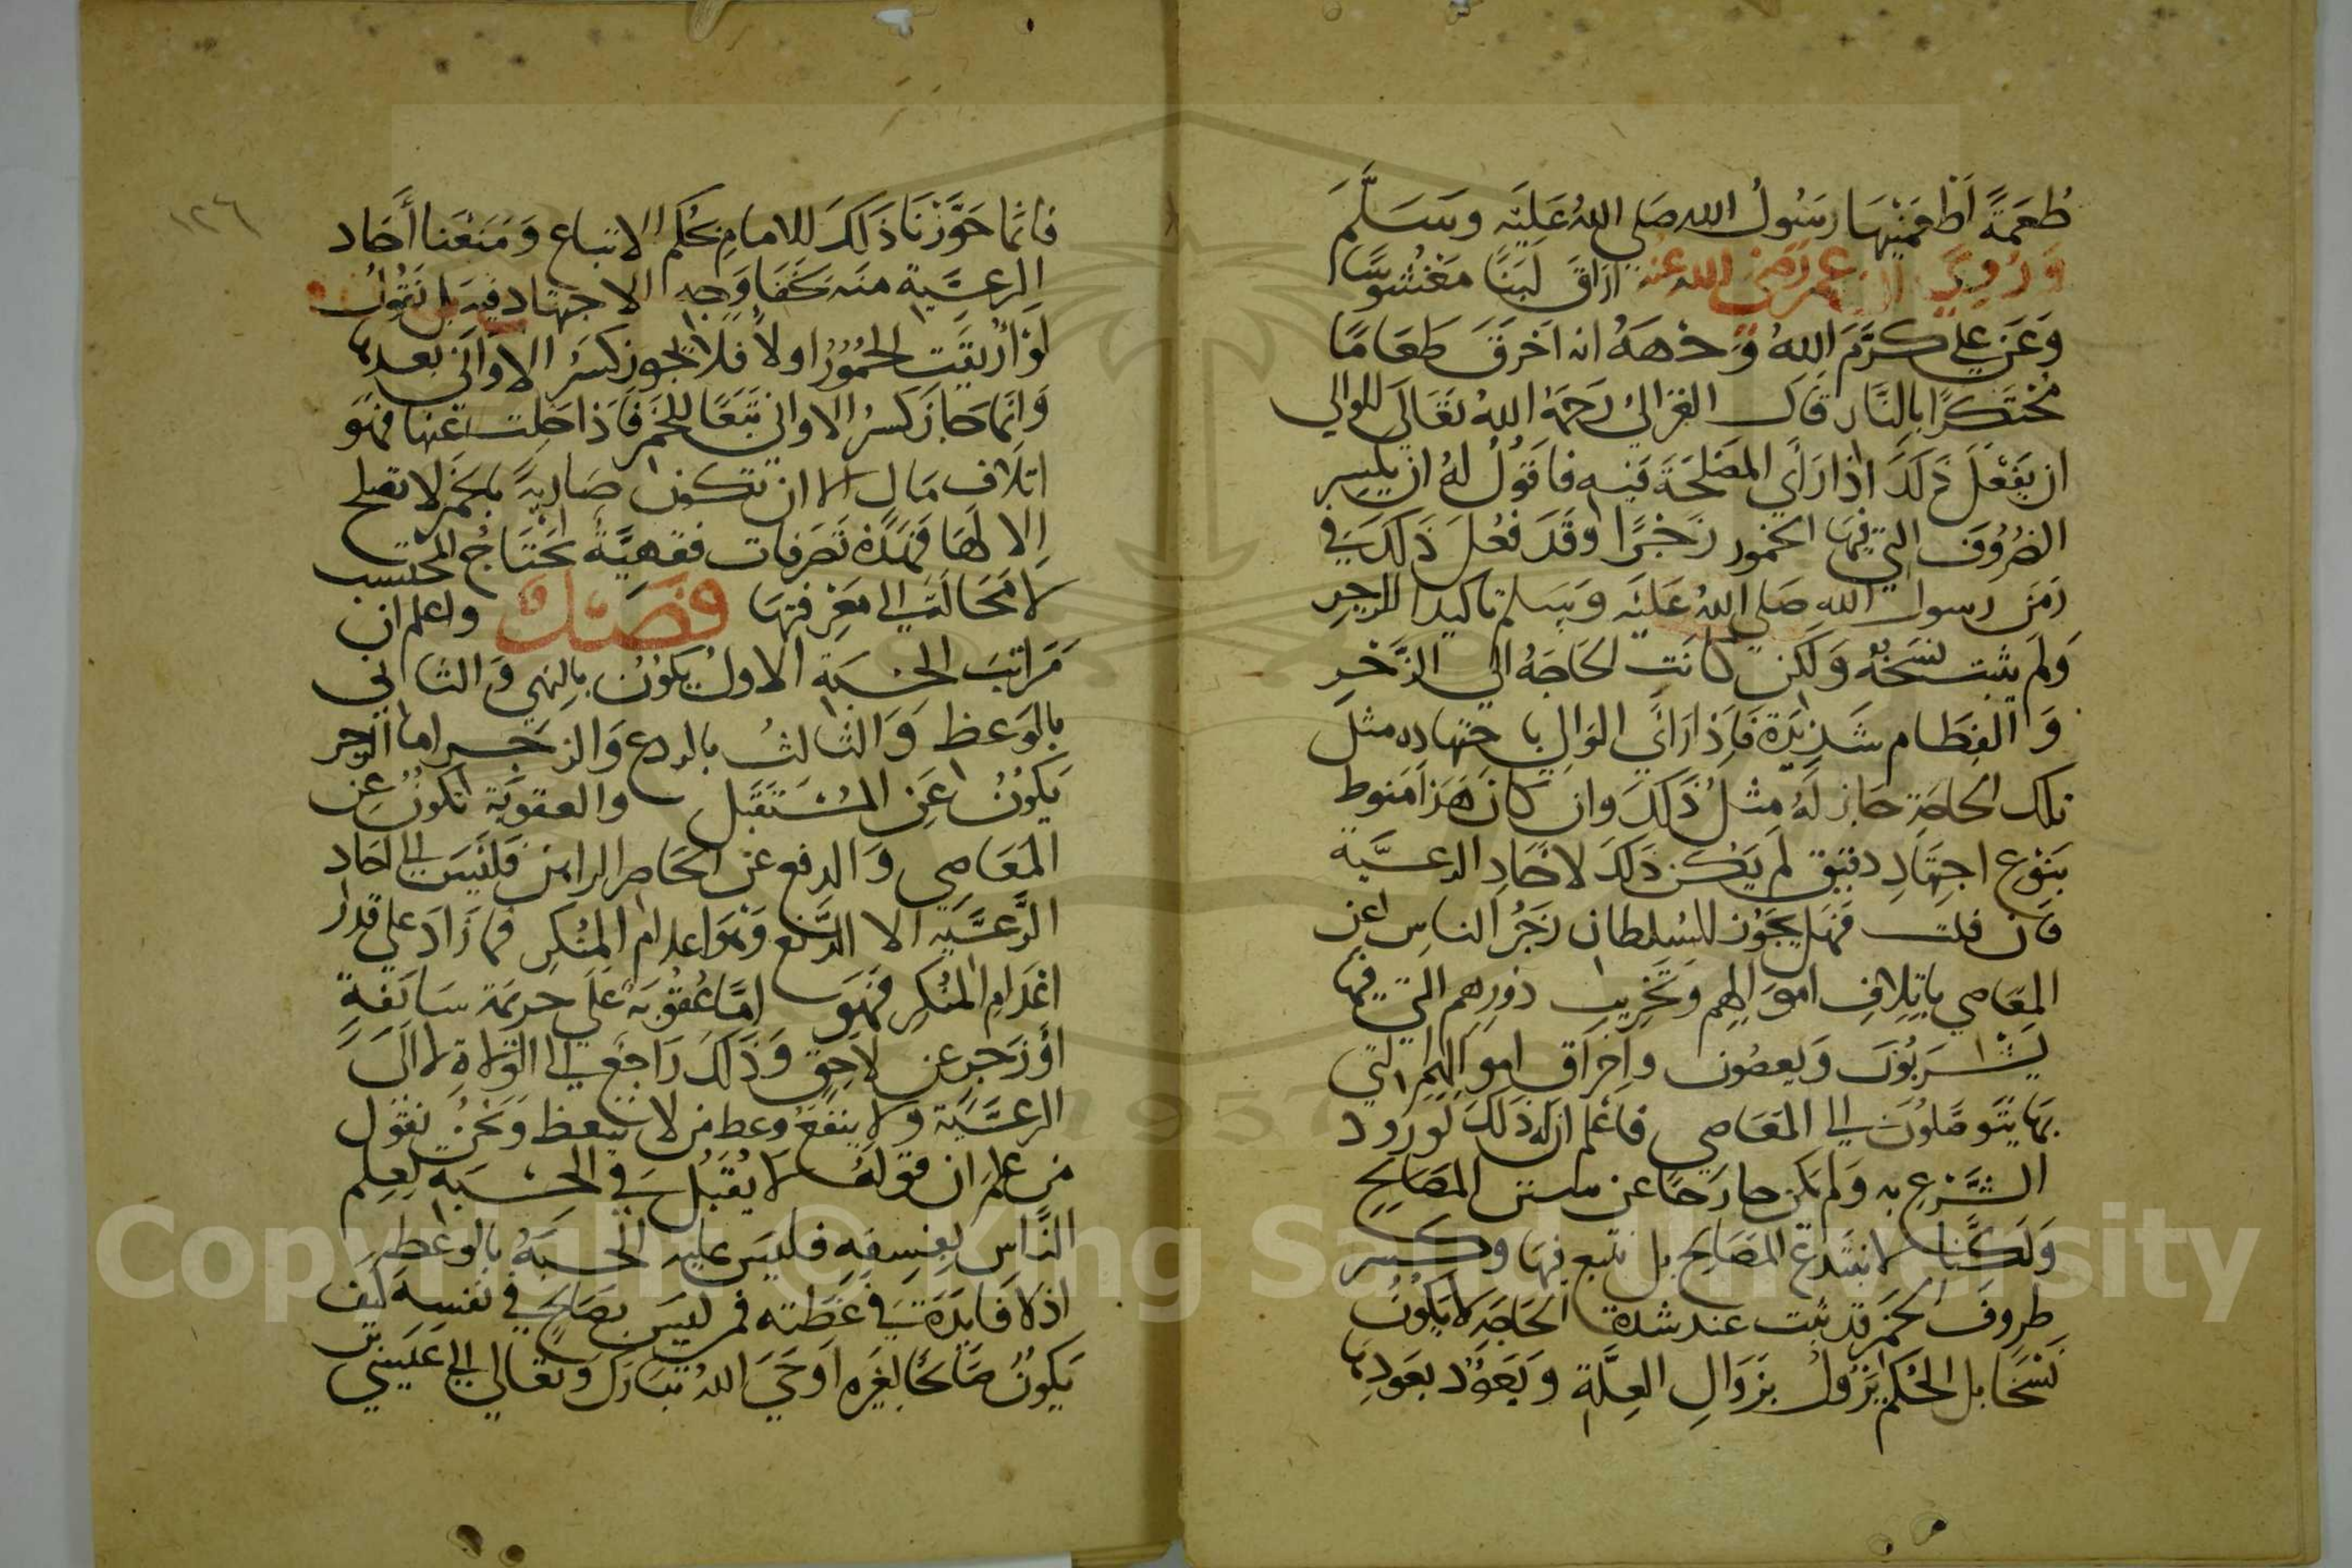 طُعمَةً اَطْعَمَنِيهَا رسُولُ الله صَلي اللهُ عَليْه وسَلَّمَ
وَرُوِيَ ان عمر رَضي الله عنه اراق لبَنًا مَغْشُوشًا
وَعَن علي كرَّمَ اللهُ وَجْهَهُ انه اَحْرَقَ طَعَامًا
مُحْتَكَرًا بالنَّار قال الغزالي رَحمَهُ اللهُ تعَالَى للوالي
ان يَفْعَلَ ذلكَ اذا رَأي المصْلحَةَ فيه فاقولُ لهُ ان يكسر
الضرُوفَ التي فيهَا الخمور زَجْرًا وَقَد فعُلَ ذَلكَ في
زمَن رسول الله صَلي اللهُ عَليْه وَسَلم تاكيدا للزجرِ
وَلم يثبت نسْخهُ وَلكن كانَت الحَاجَهُ الي الزَّجْرِ
وَالفِطَام شَديْدَة فَاذا رَأي الوَالِي باجتهاده مثل
تلك الحاجَةِ جَاز لَهُ مثلُ ذَلكَ وان كانَ هَذا منوط
بنَوْع اجتهَادٍ دقيق لَم يَكُن ذَلكَ لاحَادِ الرعيَّة
فَان قلت فَهَل يَجُوز للسُلطان زَجْرُ الناس عن
المعَاصي باتلافِ اموَالهم وتَخريبِ دُورِهم التي فيهَا
يشرَبُونَ وَيعصُون واحرَاق اموالِهم التي
بهَا يتَوصَّلُون الي المعَاصي فاعلم ان ذلكَ لو رود
الشَّرع به وَلم يكن خارجًا عن سَنن المصَالحِ
وَلكنَّا لا نبتدع المصَالح بل نتبع فيهَا وكسر
ظروفَ الخمَر قد ثبت عند شدة الحَاجَة لا يكونُ
نَسْخًا بل الحُكم يَزُولُ بزَوَالِ العِلَّة وَيَعُوْدُ بعَودِهَا
١٢٦
فانمَّا جَوَّزْنَا ذَلكَ للامامِ بحُكم الاتباع وَمَنعْنا اَحَاد
الرعيَّة منه لخفَا وَجه الاجتهاد فيه بل نَقُولُ
لوْ اُريقَت الخُمُورُ اولاً فلا يجوز كسْر الاوَاني بعدهَا
وَانمَا جَازَ كسْرُ الاواني تبَعًا للخَمر فَاذا خلت عَنها فهَو
اتلاف مَال الا ان تكون ضَاريةً بالخمر لا تصلح
الا لهَا فهَذه تصَرفات فقهيَّة يَحْتَاجُ المحْتسب
لا مَحَالَة الي مَعْرفتهَا فَصْل واعلم ان
مَرَاتبَ الحسْبَة الاولُ يكوُن بالنهي وَالثاني
بالوَعظ وَالثالثُ بالردع وَالزجر اما الزجر
يَكونُ عَن المُسْتَقبَل والعقوبَة تكونُ عن
المعَاصي وَالدفع عَن الحَاضر الراهن فَليْسَ الي احَاد
الرَّعيَّة الا الدَّفع وَهوَ اعدام المنكرِ فما زَادَ علي قدْر
اعدَامِ المنكرِ فهَوَ امَّا عُقوبَة عَلي جريمَة سَابقةٍ
أوْ زجر عن لاحق وَذلكَ رَاجع الي الوُلاة لا الي
الرعيَّة وَلا ينفَعُ وعظ من لا يتعظ وَنحنُ نقول
من علم ان قولهُ لا يُقبَلُ في الحسْبَة لعلم
النَّاس بفسقِهِ فليسَ عليه الحسْبَةُ بالوعْظ
اذ لا فَايدَة في عظَته فمن ليسَ بصَالحٍ في نفسه كيْف
يَكونُ صَالحًا لغيره اوحَي اللهُ تبَارَك وتعَالي الي عيسَي